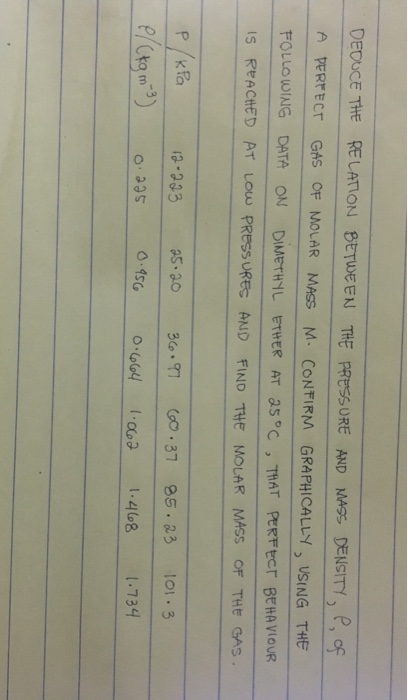 DEDUCE THE RELATION BETWEEN THE PRESSURE AND MASS DENSITY, ρ, OF
A PERFECT GAS OF MOLAR MASS M. CONFIRM GRAPHICALLY, USING THE
FOLLOWING DATA ON DIMETHYL ETHER AT 25°C, THAT PERFECT BEHAVIOUR
IS REACHED AT LOW PRESSURES AND FIND THE MOLAR MASS OF THE GAS.
P/kPa 12.223 25.20 36.97 60.37 85.23 101.3
ρ/(kg m⁻³) 0.225 0.456 0.664 1.062 1.468 1.734